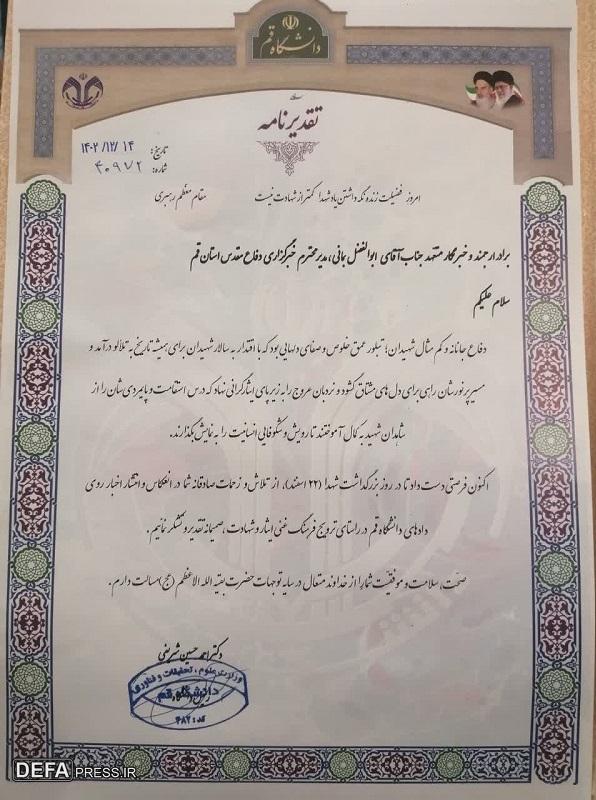 دانشگاه قم
تقدیرنامه
تاریخ: ۱۴۰۲/۱۲/۱۴
شماره: ۴۰۹۷۲
امروز فضیلت زنده نگه داشتن یاد شهدا کمتر از شهادت نیست مقام معظم رهبری
برادر ارجمند و خبرنگار متعهد جناب آقای ابوالفضل بمانی، مدیر محترم خبرگزاری دفاع مقدس استان قم
سلام علیکم
دفاع جانانه و کم مثال شهیدان؛ تبلور عمق خلوص و صفای دلهایی بود که با اقتدار به سالار شهیدان برای همیشه تاریخ به تلالو درآمد و
مسیر پرنورشان راهی برای دل های مشتاق گشود و نردبان عروج را به زیر پای ایثارگرانی نهاد که درس استقامت و پایمردی شان را از
شاهدان شهید به کمال آموختند تا رویش و شکوفایی انسانیت را به نمایش بگذارند.
اکنون فرصتی دست داد تا در روز بزرگداشت شهدا (۲۲ اسفند)، از تلاش و زحمات صادقانه شما در انعکاس و انتشار اخبار روی
دادهای دانشگاه قم در راستای ترویج فرهنگ غنی ایثار و شهادت، صمیمانه تقدیر و تشکر نمایم.
صحت، سلامت و موفقیت شما را از خداوند متعال در سایه توجهات حضرت بقیه الله الاعظم (عج) مسالت دارم.
دکتر احمد حسین شریفی
وزارت علوم، تحقیقات و فناوری
دانشگاه قم
کد: ۴۸۲
DEFAPRESS.IR